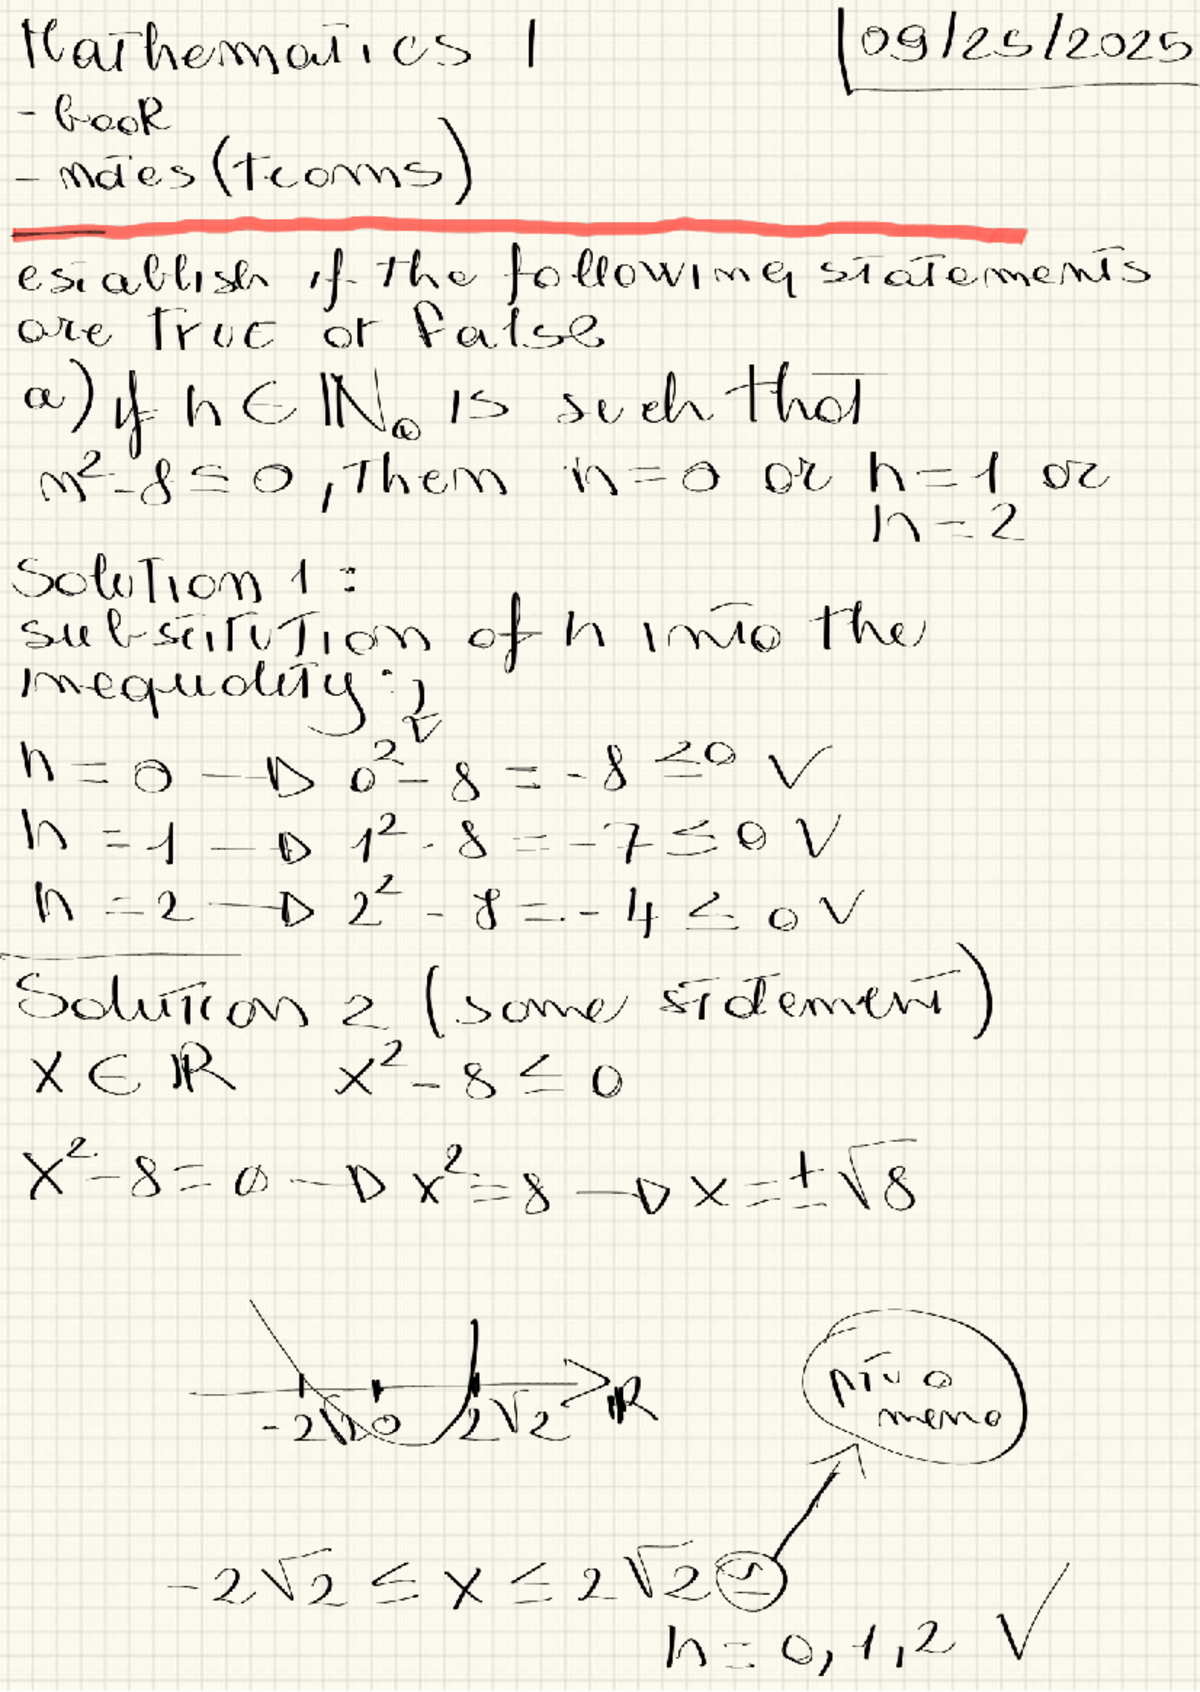 Mathematics 1
09/25/2025
- book
- notes (teams)
establish if the following statements
are true or false
a) if n ∈ ℕ₀ is such that
n² - 8 ≤ 0, then n = 0 or n = 1 or
n = 2
Solution 1 :
substitution of n into the
inequality :
n = 0 → 0² - 8 = -8 ≤ 0 V
n = 1 → 1² - 8 = -7 ≤ 0 V
n = 2 → 2² - 8 = -4 ≤ 0 V
Solution 2 (same statement)
x ∈ ℝ x² - 8 ≤ 0
x² - 8 = 0 → x² = 8 → x = ± √8
-2√2 0 2√2 ℝ
più o
meno
-2√2 ≤ x ≤ 2√2 ≃
n = 0, 1, 2 √